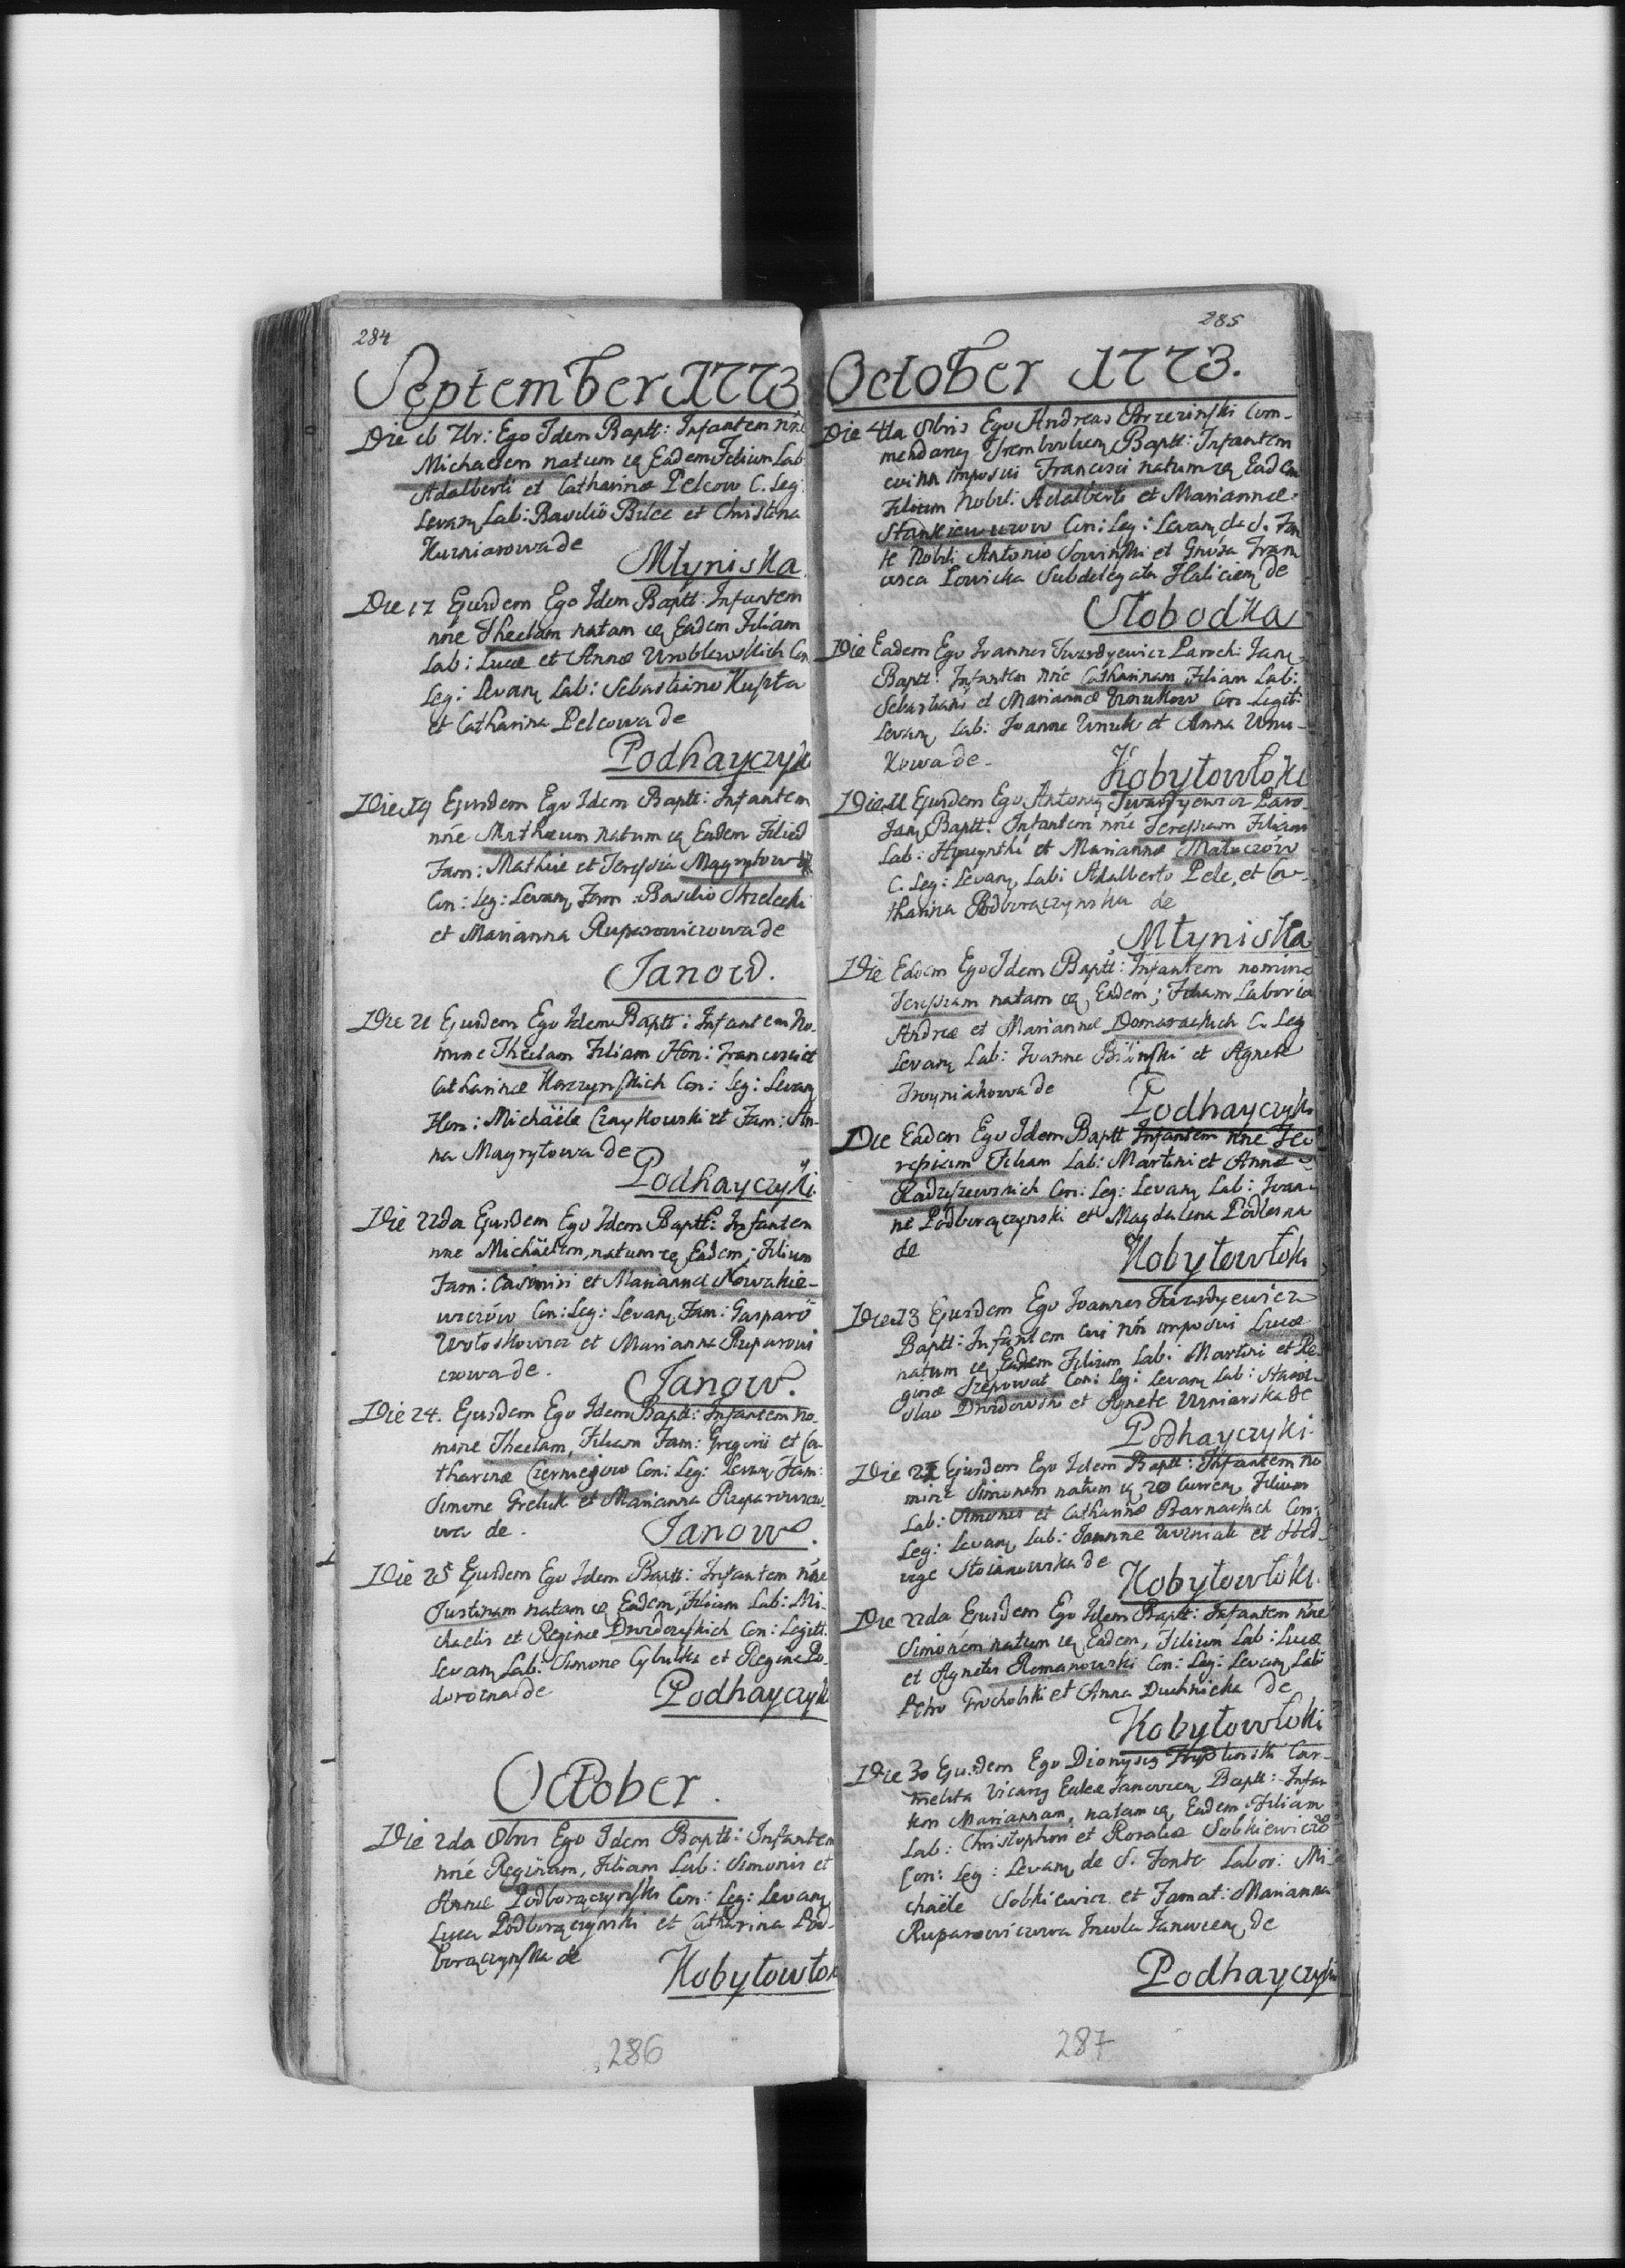 284
September 1773
Die 16 7br: Ego Idem Baptt: Infantem nñe
Michaelem natum eą Eadem Filium Lab
Adalberti et Catharinæ Pelcow C. Leg:
Levanţ Lab: Basilio Bilec et Christina
Kuzniarowa de
Młyniska
Die 17 Ejusdem Ego Idem Baptt: Infantem
nñe Theclam natam eą Eadem Filiam
Lab: Lucæ et Annæ Wroblewskich Con
Leg: Levanţ Lab: Sebastiano Kupta
et Catharina Pelcowa de
Podhayczyk
Die 19 Ejusdem Ego Idem Baptt: Infantem
nñe Mathæum natum eą Eadem Filiū
Fam: Mathiæ et Teressia
Con: Leg: Levanţ Fam: Basilio Strzelecki
et Marianna Ruparowiczowa de
Janow.
Die 21 Ejusdem Ego Idem Baptt: Infantem No-
mine Theclam Filiam Hon: Francisci et
Catharinæ Korczynskich Con: Leg: Levanţ
Hon: Michaële Czaykowski et Fam: An-
na Magrytowa de
Podhayczyki
Die 22da Ejusdem Ego Idem Baptt: Infantem
nñe Michäelem, natum eą Eadem; Filium
Fam: Casimiri et Mariannæ Nowakie-
wiczów Con: Leg: Levanţ Fam: Gasparo
Wołoskowicz et Marianna Ruparowi
czowa de.
Janow.
Die 24. Ejusdem Ego Idem Baptt: Infantem no-
mine Theclam, Filiam Fam: Gregorii et Ca-
tharinæ Czerniejow Con: Leg: Levanţ Fam:
Simone Greluk et Marianna Ruparowiczo-
wa de.
Janow.
Die 25 Ejusdem Ego Idem Baptt: Infantem nñe
Justinam natam eą Eadem, Filiam Lab: Mi-
chaelis et Reginæ Drozdowskich Con: Legitt.
Levanţ Lab: Simone Cybulka et Regina Po-
dorozna de
Podhayczyk
October.
Die 2da 8bris Ego Idem Baptt: Infantem
nñe Reginam, Filiam Lab: Simonis et
Annæ Podborączynski Con: Leg: Levanţ
Luca Podborączynski et Catharina Pod-
borączynska de
Kobyłowłok
286
285
October 1773.
Die 4ta 8bris Ego Andreas Brzezinski Com-
mendarţ Trembovlienţ Baptt: Infantem
cui nn imposui Francisci natum eą Eadem
Filium Nobil: Adalberti et Mariannæ
Stankiewiczow Con: Leg: Levanţ de S. Fon
te Nobili Antonio Sowinski et Gnosa Fran
cisca Łowicka Subdelegata Haliciens de
Słobodka
Die Eadem Ego Ivannes Twardyewicz Paroch: Janţ
Baptt: Infantem nñe Catharinam Filiam Lab:
Sebastiani et Mariannæ Wnukow Con Legitt:
Levanţ Lab: Joanne Wnuk et Anna Wnu-
kowa de.
Kobyłowłoki
Die 11 Ejusdem Ego Antonius Twardyewicz Paro-
Janţ Baptt: Infantem nñe Teressiam Filiam
Lab: Hyacynthi et Mariannæ Matuczow
C. Leg: Levanţ Lab: Adalberto Pelc, et Ca-
tharina Podborączynska de
Młyniska
Die Eadem Ego Idem Baptt: Infantem nomine
Teressiam natam eą Eadem; Filiam Laborio
Andreæ et Mariannæ Domarackich C. Leg
Levanţ Lab: Ivanne Bilinski et Agnete
Troyniakowa de
Podhayczyki
Die Eadem Ego Idem Baptt Infantem nñe Te-
resiam Filiam Lab: Martini et Annæ
Radziszewskich Con: Leg: Levanţ Lab: Ivan-
ne Podborączynski et Magdalena Podlesna
de
Kobyłowłoki
Die 13 Ejusdem Ego Ivannes Twardyewicz
Baptt: Infantem cui nñ imposui Lucæ
natum eą Eadem Filium Lab: Martini et Re-
ginæ Con: Leg: Levanţ Lab: Stanis-
slao Drozdowski et Agnete de
Podhayczyki.
Die 21 Ejusdem Ego Idem Baptt: Infantem no
mine Simonem natum eą 20 Currenţ Filium
Lab: Simonis et Catharinæ Barnackich Con:
Leg: Levanţ Lab: Joanne Wozniak et Hed-
vige Stoianowska de
Kobyłowłoki.
Die 22da Ejusdem Ego Idem Baptt: Infantem nñe
Simonem natum eą Eadem, Filium Lab: Lucæ
et Agnetis Romanowski Con: Leg: Levanţ Lab:
Petro Grocholski et Anna Duchnicka de
Kobyłowłoki
Die 30 Ejusdem Ego Dionysius Car-
melita Vicarţ Eclæ Janovienţ Baptt: Infan
tem Mariannam, natam eą Eadem Filiam
Lab: Christophori et Rosaliæ Sobkiewiczo
Con: Leg: Levanţ de S. Fonte Labor: Mi-
chaële Sobkiewicz et Famat: Marianna
Ruparowiczowa Incola Janovienţ de
Podhayczyki
287